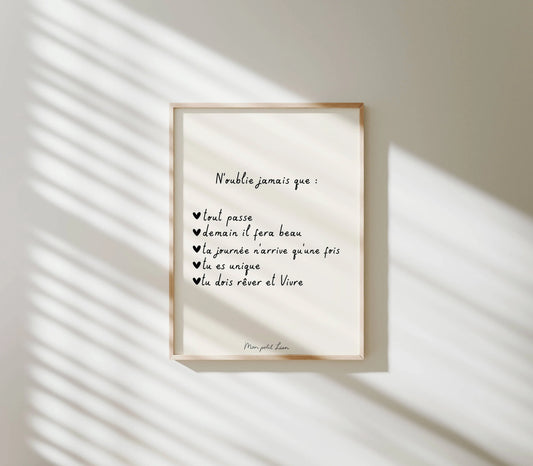 N'oublie jamais que :
♥tout passe
♥demain il fera beau
♥ta journée n'arrive qu'une fois
♥tu es unique
♥tu dois rêver et Vivre
Mon petit Léon